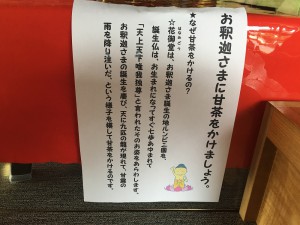 お釈迦さまに甘茶をかけましょう。
★なぜ甘茶をかけるの？
☆花御堂は、お釈迦さま誕生の地ルンビニ園を、
誕生仏は、お生まれになってすぐ七歩あゆまれて
「天上天下唯我独尊」と言われたそのお姿をあらわします。
お釈迦さまの誕生を慶び、天に九匹の龍が現れて、甘露の
雨を降り注いだ、という様子を模して甘茶をかけるのです。